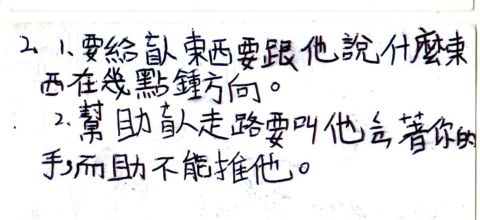 2. 1、要給盲人東西要跟他說什麼東
西在幾點鐘方向。
2. 幫助盲人走路要叫他 著你的
手 而助不能推他。